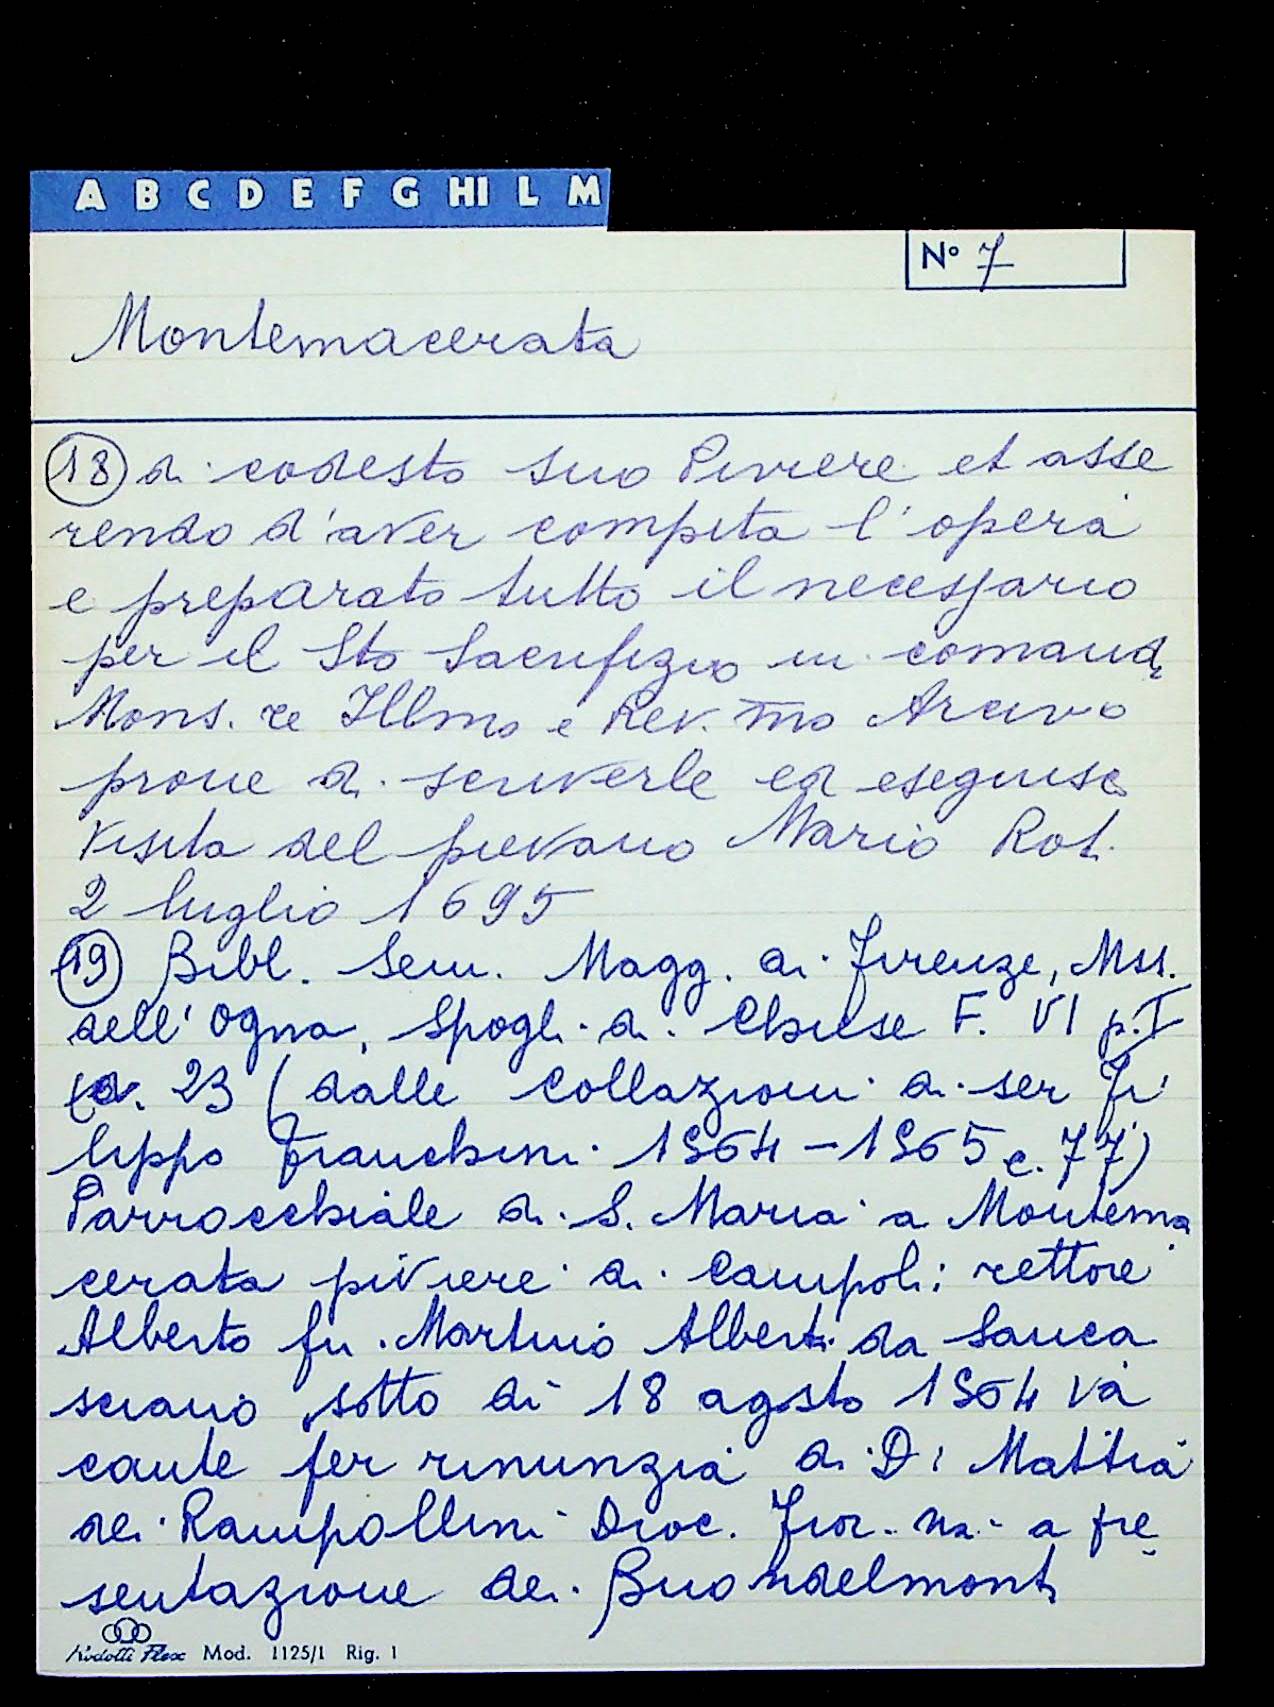 A B C D E F G HI L M
N° 7
Montemacerata
18 di codesto suo Piviere et asse
rendo d'aver compita l'opera
e preparato tutto il necessario
per il Sto Sacrifizio mi comanda
Mons. re Illmo e Rev. mo Arcivo
prone di scriverle ed eseguisca
visita del pievano Mario Rot.
2 luglio 1695
19 Bibl. Sem. Magg. di Firenze, Mss.
dell'Ogna, Spogli di Chiese F. VI p. I
23 (dalle Collazioni di ser Fi
lippo Franchini 1564-1565 c. 77)
Parrocchiale di S. Maria a Montema
cerata piviere di Campoli: rettore
Alberto fu Martino Alberti da Sanca
sciano sotto dì 18 agosto 1564 va
cante per rinunzia di D: Mattia
dei Rampollini Dioc. Fior. na a pre
sentazione dei Buondelmonti
Mod. 1125/1 Rig. 1